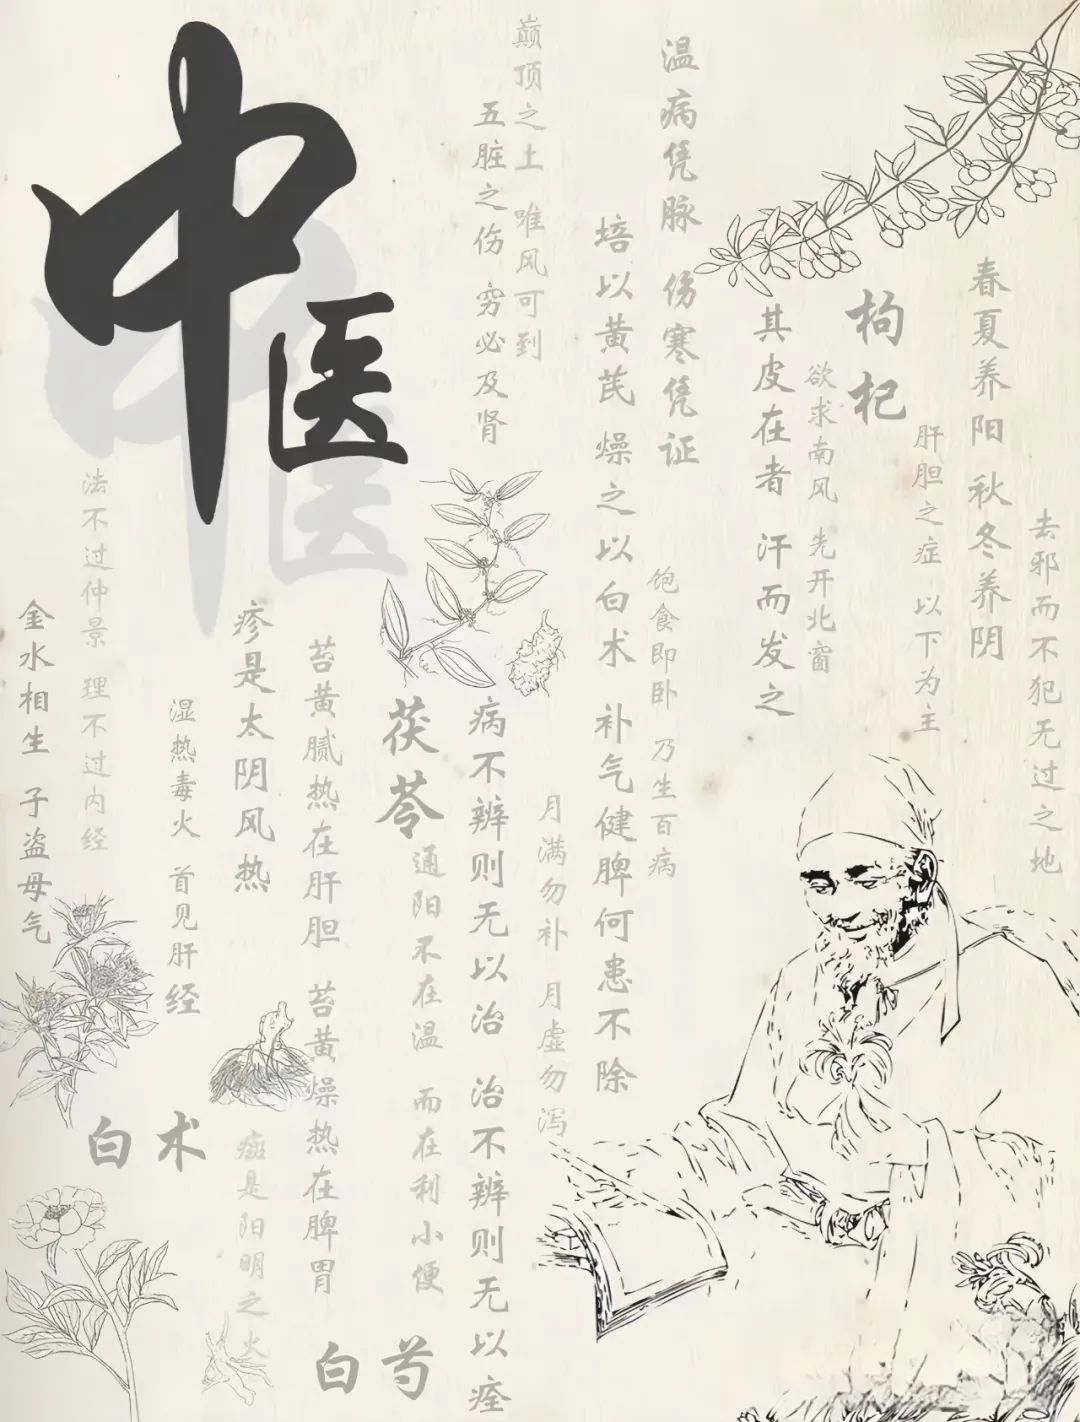 中医
巅顶之上 唯风可到
五脏之伤 穷必及肾
温病凭脉 伤寒凭证
培以黄芪 燥之以白术 补气健脾何患不除
春夏养阳 秋冬养阴
枸杞
其皮在者 汗而发之
欲求南风 先开北窗
肝胆之症 以下为主
去邪而不犯无过之地
饱食即卧 乃生百病
法不过仲景 理不过内经
金水相生 子盗母气
疹是太阴风热
湿热毒火 首见肝经
苔黄腻热在肝胆 苔黄燥热在脾胃
茯苓
通阳不在温 而在利小便
病不辨则无以治 治不辨则无以痊
月满勿补 月虚勿泻
白术
斑是阳明之火
白芍